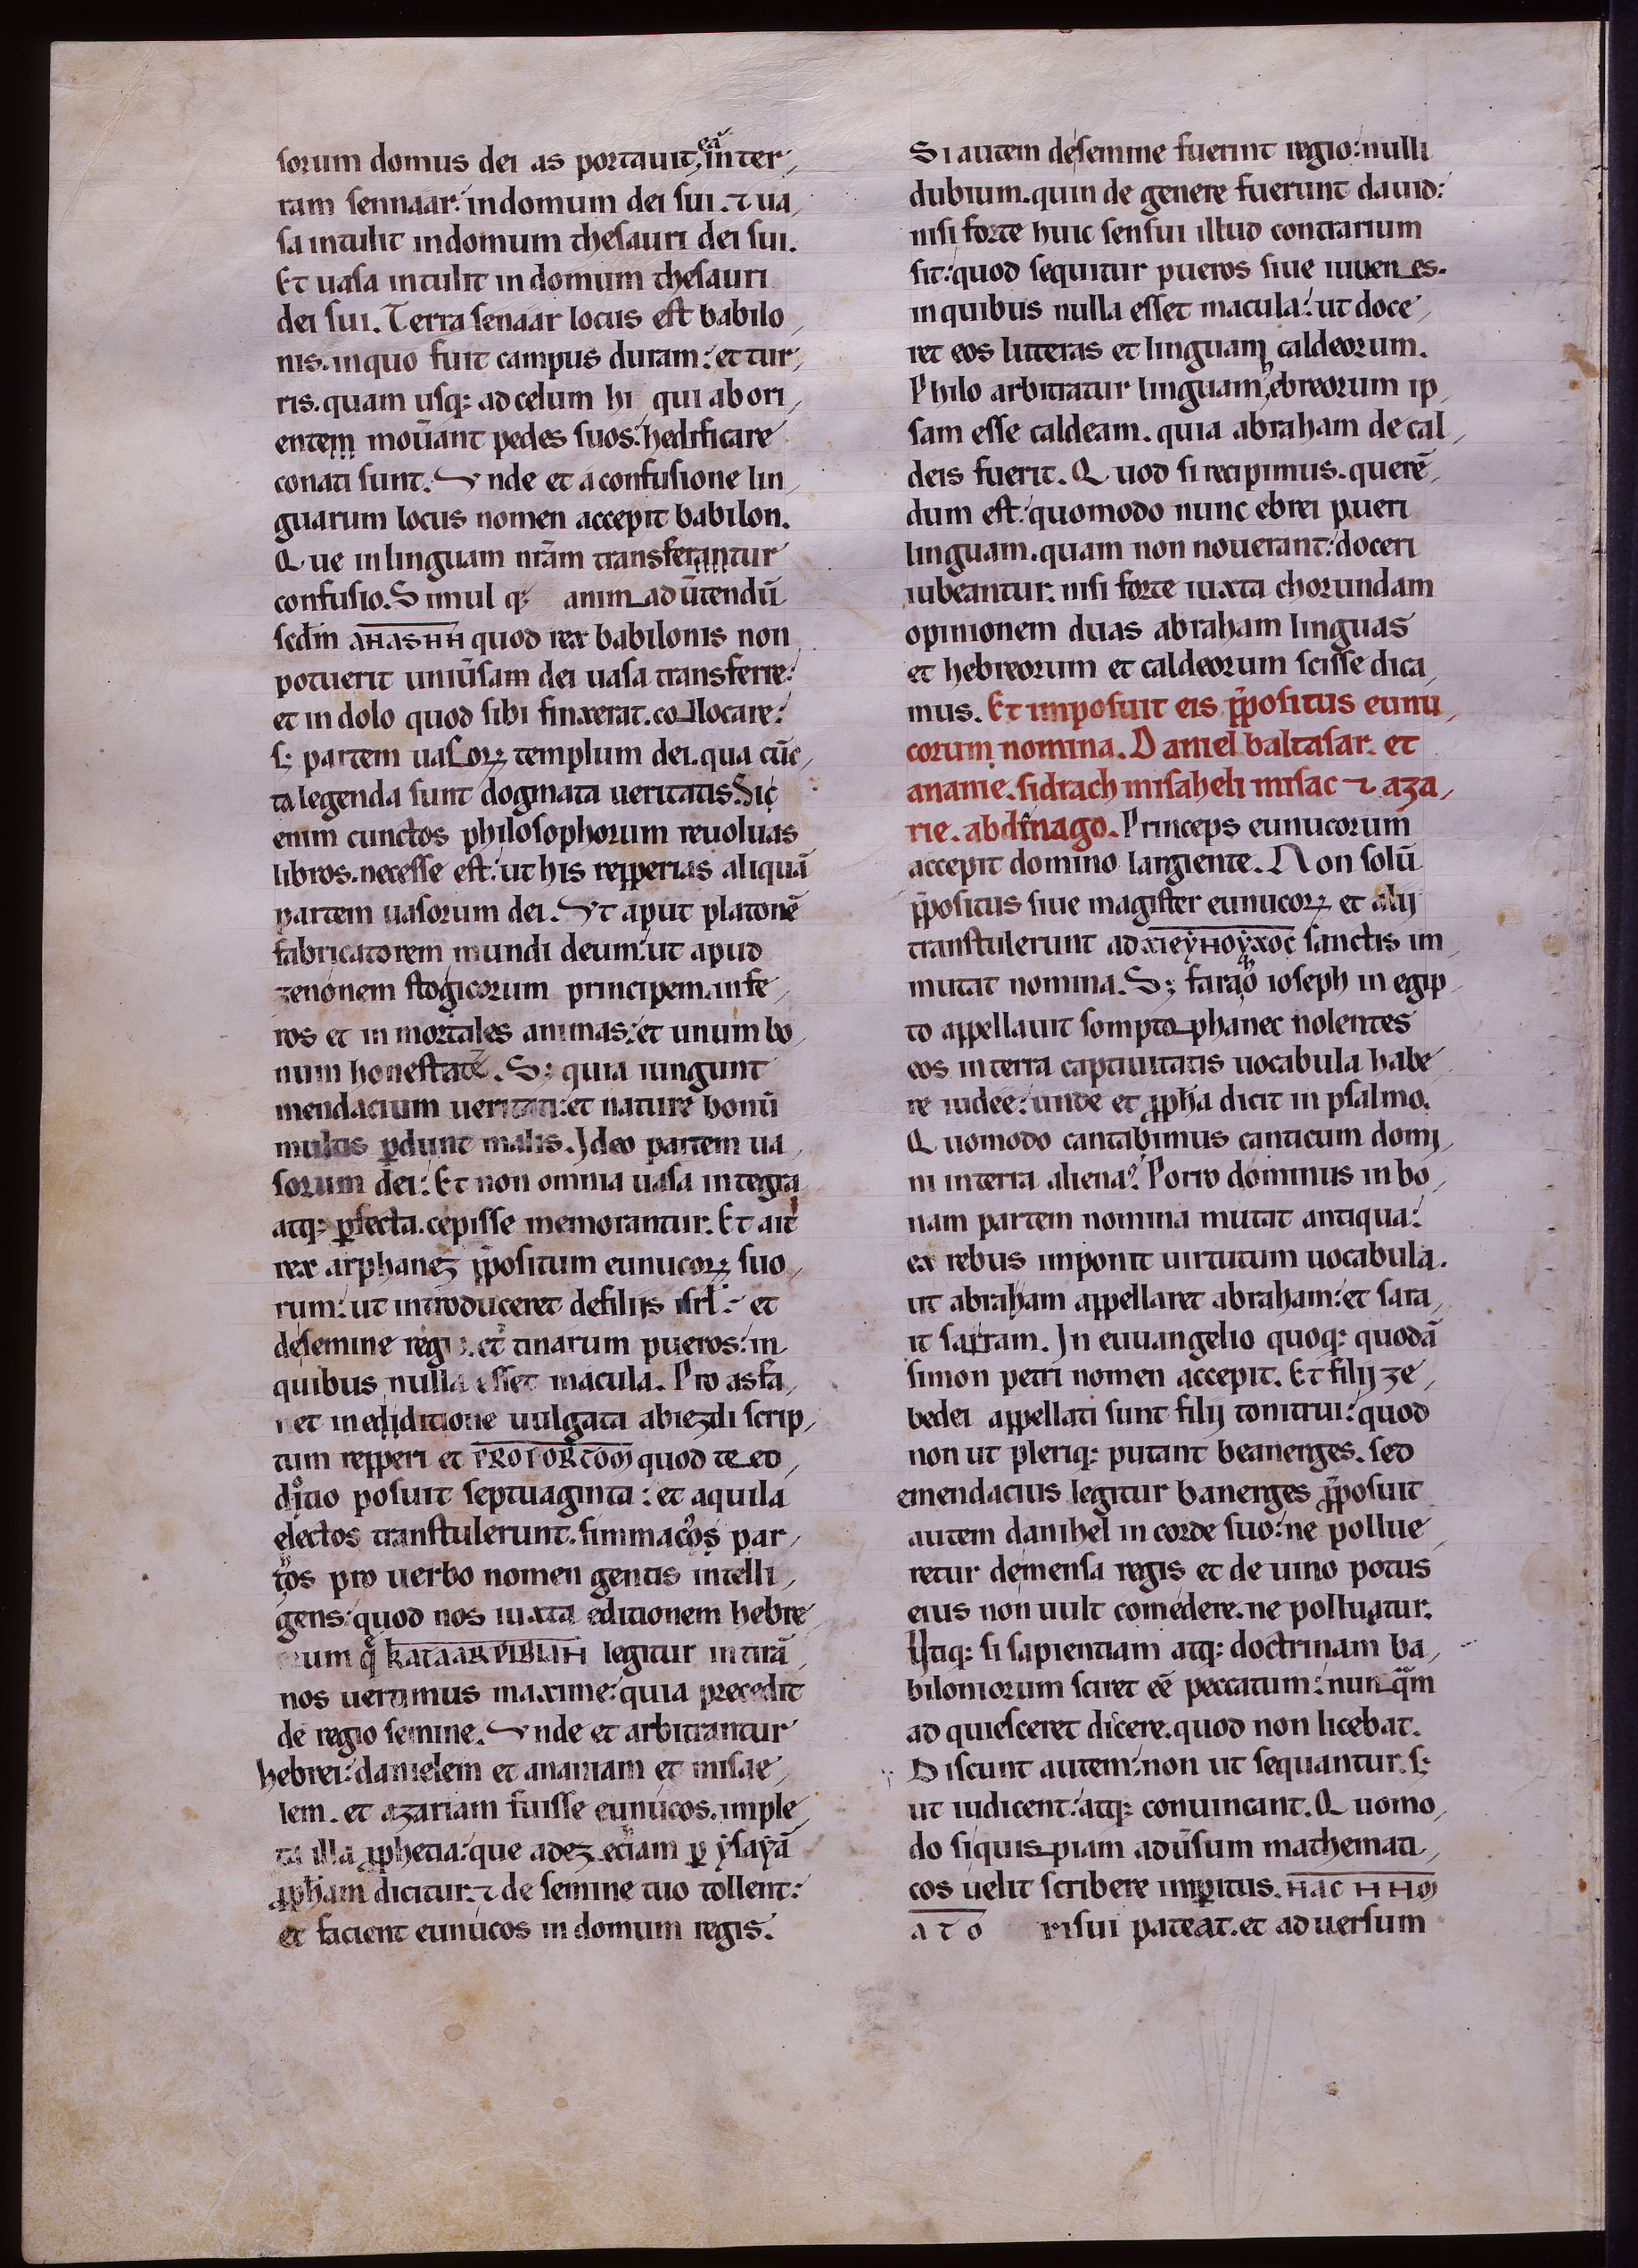 sorum domus dei as portauit, ea in ter,
ram sennaar: indomum dei sui. ⁊ ua,
sa intulit indomum thesauri dei sui.
Et uasa intulit in domum thesauri
dei sui. Terra senaar locus est babilo,
nis. inquo fuit campus duram: et tur,
ris. quam usq; ad celum hi qui ab ori,
entem mouant pedes suos: hedificare
conati sunt. Vnde et a confusione lin,
guarum locus nomen accepit babilon.
Que in linguam nrām transferantur
confusio. Simul q; anim ad ūtendū
sedm̄ anasнн quod rex babilonis non
potuerit uniūsam dei uasa transferre:
et in dolo quod sibi finxerat. collocare:
s; partem uasoꝝ templum dei. qua cūc,
ta legenda sunt dogmata ueritatis. Sic
enim cunctos philosophorum reuoluas
libros. necesse est: ut his repperias aliquā
partem uasorum dei. Vt aput platonē
fabricatorem mundi deum: ut apud
zenonem stogicorum principem. infe,
ros et in mortales animas: et unum bo,
num honestatē. S; quia iungunt
mendacium ueritati: et nature bonū
multis ꝑdunt malis. Ideo partem ua,
sorum dei: Et non omnia uasa integra
atq; ꝑfecta. cepisse memorantur. Et ait
rex arphanez p̄positum eunucoꝝ suo,
rum: ut introduceret defilijs isrl̄: et
desemine regi. et tinarum pueros: in
quibus nulla esset macula. Pro asfa,
net in edditione uulgata abiezdi scrip,
tum repperi et proportom quod te eo,
ditio posuit septuaginta: et aquila
electos transtulerunt. simmacos par,
tos pro uerbo nomen gentis intelli,
gens: quod nos iuxta editionem hebre
rum q kataarpiblian legitur in tirā,
nos uertimus maxime: quia precedit
de regio semine. Vnde et arbitrantur
hebrei: danielem et ananiam et misae,
lem. et azariam fuisse eunucos. imple,
ta illa ꝓphetia: que adez eciam ꝑ ẏsaẏā
ꝓphām dicitur. ⁊ de semine tuo tollent:
et facient eunucos in domum regis.
Si autem desemine fuerint regio: nulli
dubium. quin de genere fuerunt dauid:
nisi forte huic sensui illud contrarium
sit: quod sequitur pueros siue iuuenes.
in quibus nulla esset macula: ut doce,
ret eos litteras et linguam caldeorum.
Philo arbitratur linguam, hebreorum ip,
sam esse caldeam. quia abraham de cal,
deis fuerit. Quod si recipimus. querē,
dum est: quomodo nunc ebrei pueri
linguam. quam non nouerant: doceri
iubeantur. nisi forte iuxta chorundam
opinionem duas abraham linguas
et hebreorum et caldeorum scisse dica,
mus. Et imposuit eis p̄positus eunu,
corum nomina. Daniel baltasar. et
ananie. sidrach misaheli misac ⁊ aza,
rie. abdinago. Princeps eunucorum
accepit domino largiente. Non solū
p̄positus siue magister eunucoꝝ et alij
transtulerunt ad xieẏнoẏxoc sanctis im,
mutat nomina. S; farao ioseph in egip,
to appellauit sompto phanec nolentes
eos in terra captiuitatis uocabula habe,
re iudee: unde et ꝓpha dicit in psalmo.
Quomodo cantabimus canticum domi,
ni interra aliena? Porro dominus in bo,
nam partem nomina mutat antiqua:
ex rebus imponit uirtutum uocabula.
ut abraham appellaret abraham: et sara,
it sarram. In euuangelio quoq; quodā
simon petri nomen accepit. Et filij ze,
bedei appellati sunt filij tonitrui: quod
non ut pleriq; putant beanerges. sed
emendacius legitur banerges p̄posuit
autem danihel in corde suo: ne pollue,
retur demensa regis et de uino potus
eius non uult comedere. ne polluatur.
Utiq; si sapientiam atq; doctrinam ba,
biloniorum sciret eē peccatum: nun quam
ad quiesceret dicere. quod non licebat.
Discunt autem: non ut sequantur. s;
ut iudicent: atq; conuincant. Quomo,
do siquispiam adūsum mathemati,
cos uelit scribere imperitus. нac н нω
a t o risui pateat. et ad uersum